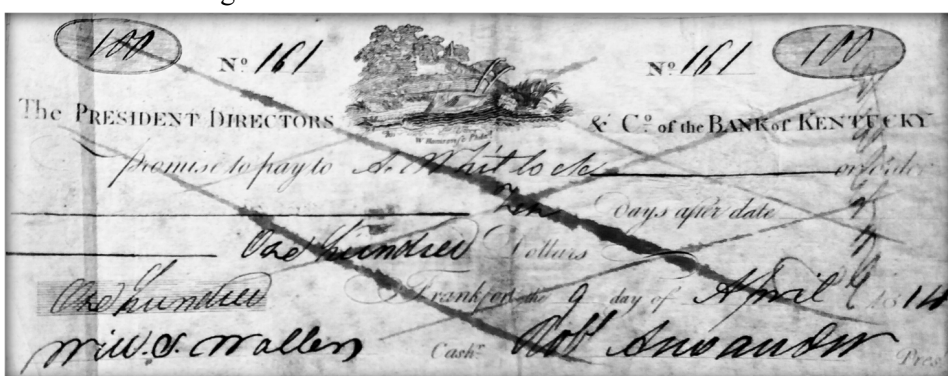 100 Nº 161 Nº 161 100
The PRESIDENT DIRECTORS & Cº. of the BANK of KENTUCKY
promise to pay to A. Whitlock or Order
Ten Days after date
One hundred Dollars
One hundred Frankfort the 9 day of April 1814
Will. S. Waller Cashr. Robt Alexander Pres